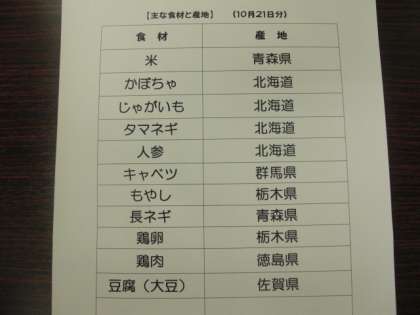 【主な食材と産地】 (10月21日分)
食 材 産 地
米 青森県
かぼちゃ 北海道
じゃがいも 北海道
タマネギ 北海道
人参 北海道
キャベツ 群馬県
もやし 栃木県
長ネギ 青森県
鶏卵 栃木県
鶏肉 徳島県
豆腐(大豆) 佐賀県